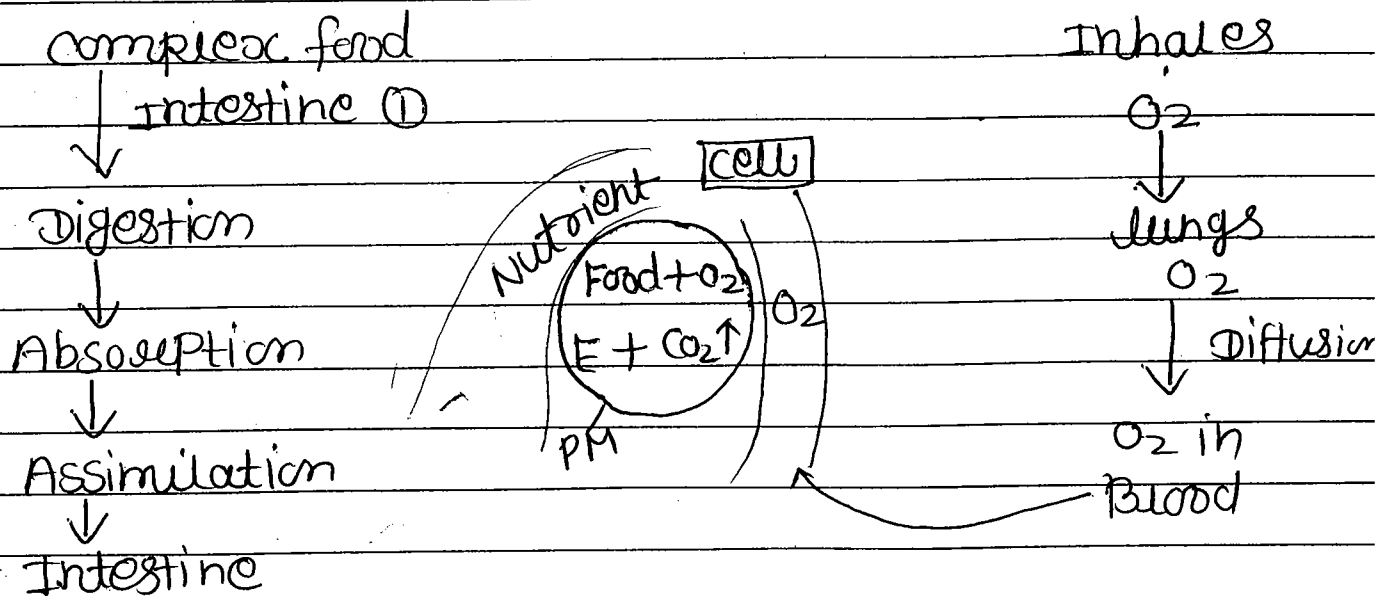 Complex food
Intestine ①
Digestion
Absorption
Assimilation
Intestine
cell
Nutrient
Food + O2
E + CO2↑
PM
O2
Inhales
O2
lungs
O2
Diffusion
O2 in
Blood